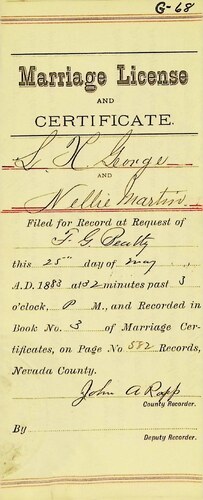 G-68
Marriage License
AND
CERTIFICATE.
S. H. George
AND
Nellie Martin
Filed for Record at Request of
F. G. Beatty
this 25th day of May
A.D. 1883 at 32 minutes past 3
o'clock, P M., and Recorded in
Book No. 3 of Marriage Cer-
tificates, on Page No 582 Records,
Nevada County.
John A Rapp
County Recorder.
By
Deputy Recorder.